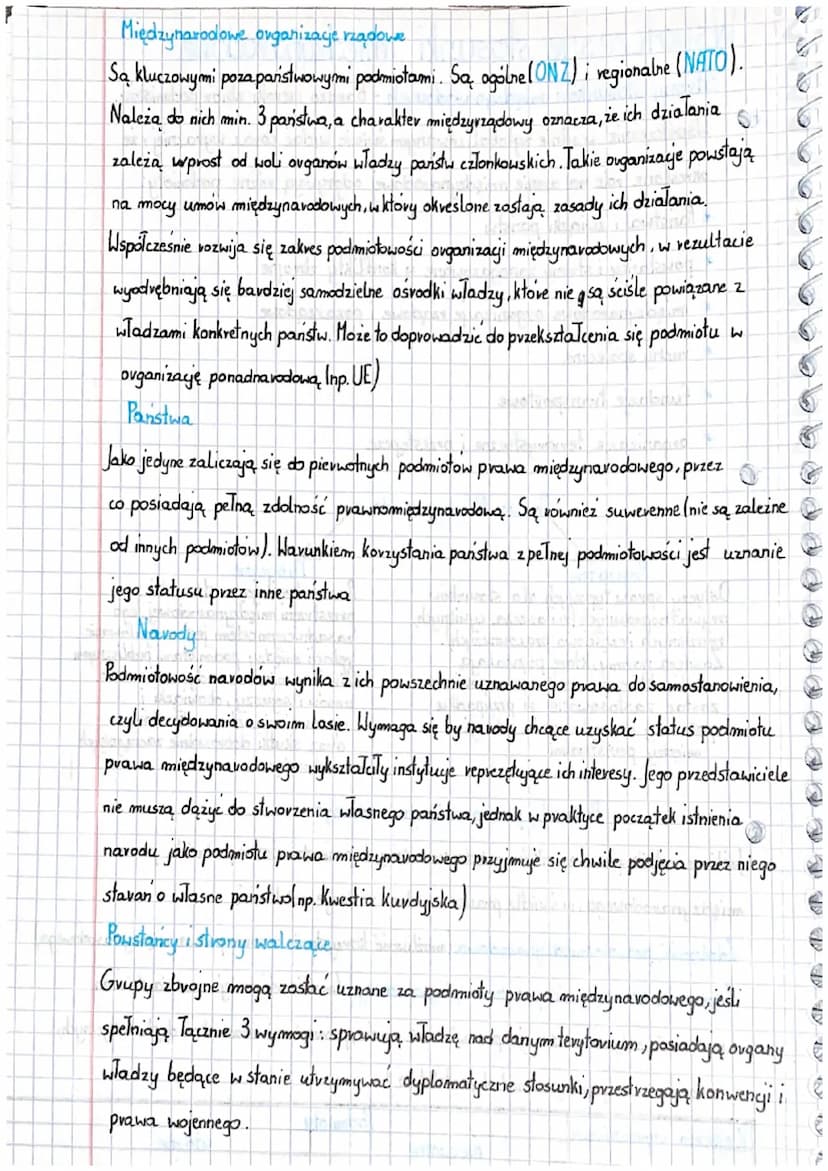 Międzynarodowe organizacje rządowe
Są kluczowymi pozapaństwowymi podmiotami. Są ogólne (ONZ) i regionalne (NATO).
Należą do nich min. 3 państwa, a charakter międzyrządowy oznacza, że ich działania
zależą wprost od woli organów władzy państw członkowskich. Takie organizacje powstają
na mocy umów międzynarodowych, w który określone zostają zasady ich działania.
Współcześnie rozwija się zakres podmiotowości organizacji międzynarodowych, w rezultacie
wyodrębniają się bardziej samodzielne ośrodki władzy, które nie są ściśle powiązane z
władzami konkretnych państw. Może to doprowadzić do przekształcenia się podmiotu w
organizację ponadnarodową (np. UE)
Państwa
Jako jedyne zaliczają się do pierwotnych podmiotów prawa międzynarodowego, przez
co posiadają pełną zdolność prawnomiędzynarodową. Są również suwerenne (nie są zależne
od innych podmiotów). Warunkiem korzystania państwa z pełnej podmiotowości jest uznanie
jego statusu przez inne państwa
Narody
Podmiotowość narodów wynika z ich powszechnie uznawanego prawa do samostanowienia,
czyli decydowania o swoim losie. Wymaga się by narody chcące uzyskać status podmiotu
prawa międzynarodowego wykształciły instytucje reprezętujące ich interesy. Jego przedstawiciele
nie muszą dążyć do stworzenia własnego państwa, jednak w praktyce początek istnienia
narodu jako podmiotu prawa międzynarodowego przyjmuje się chwile podjęcia przez niego
starań o własne państwo (np. Kwestia Kurdyjska)
Powstańcy i strony walczące
Grupy zbrojne mogą zostać uznane za podmioty prawa międzynarodowego, jeśli
spełniają łącznie 3 wymogi: sprawują władzę nad danym terytorium, posiadają organy
władzy będące w stanie utrzymywać dyplomatyczne stosunki, przestrzegają konwencji i
prawa wojennego.